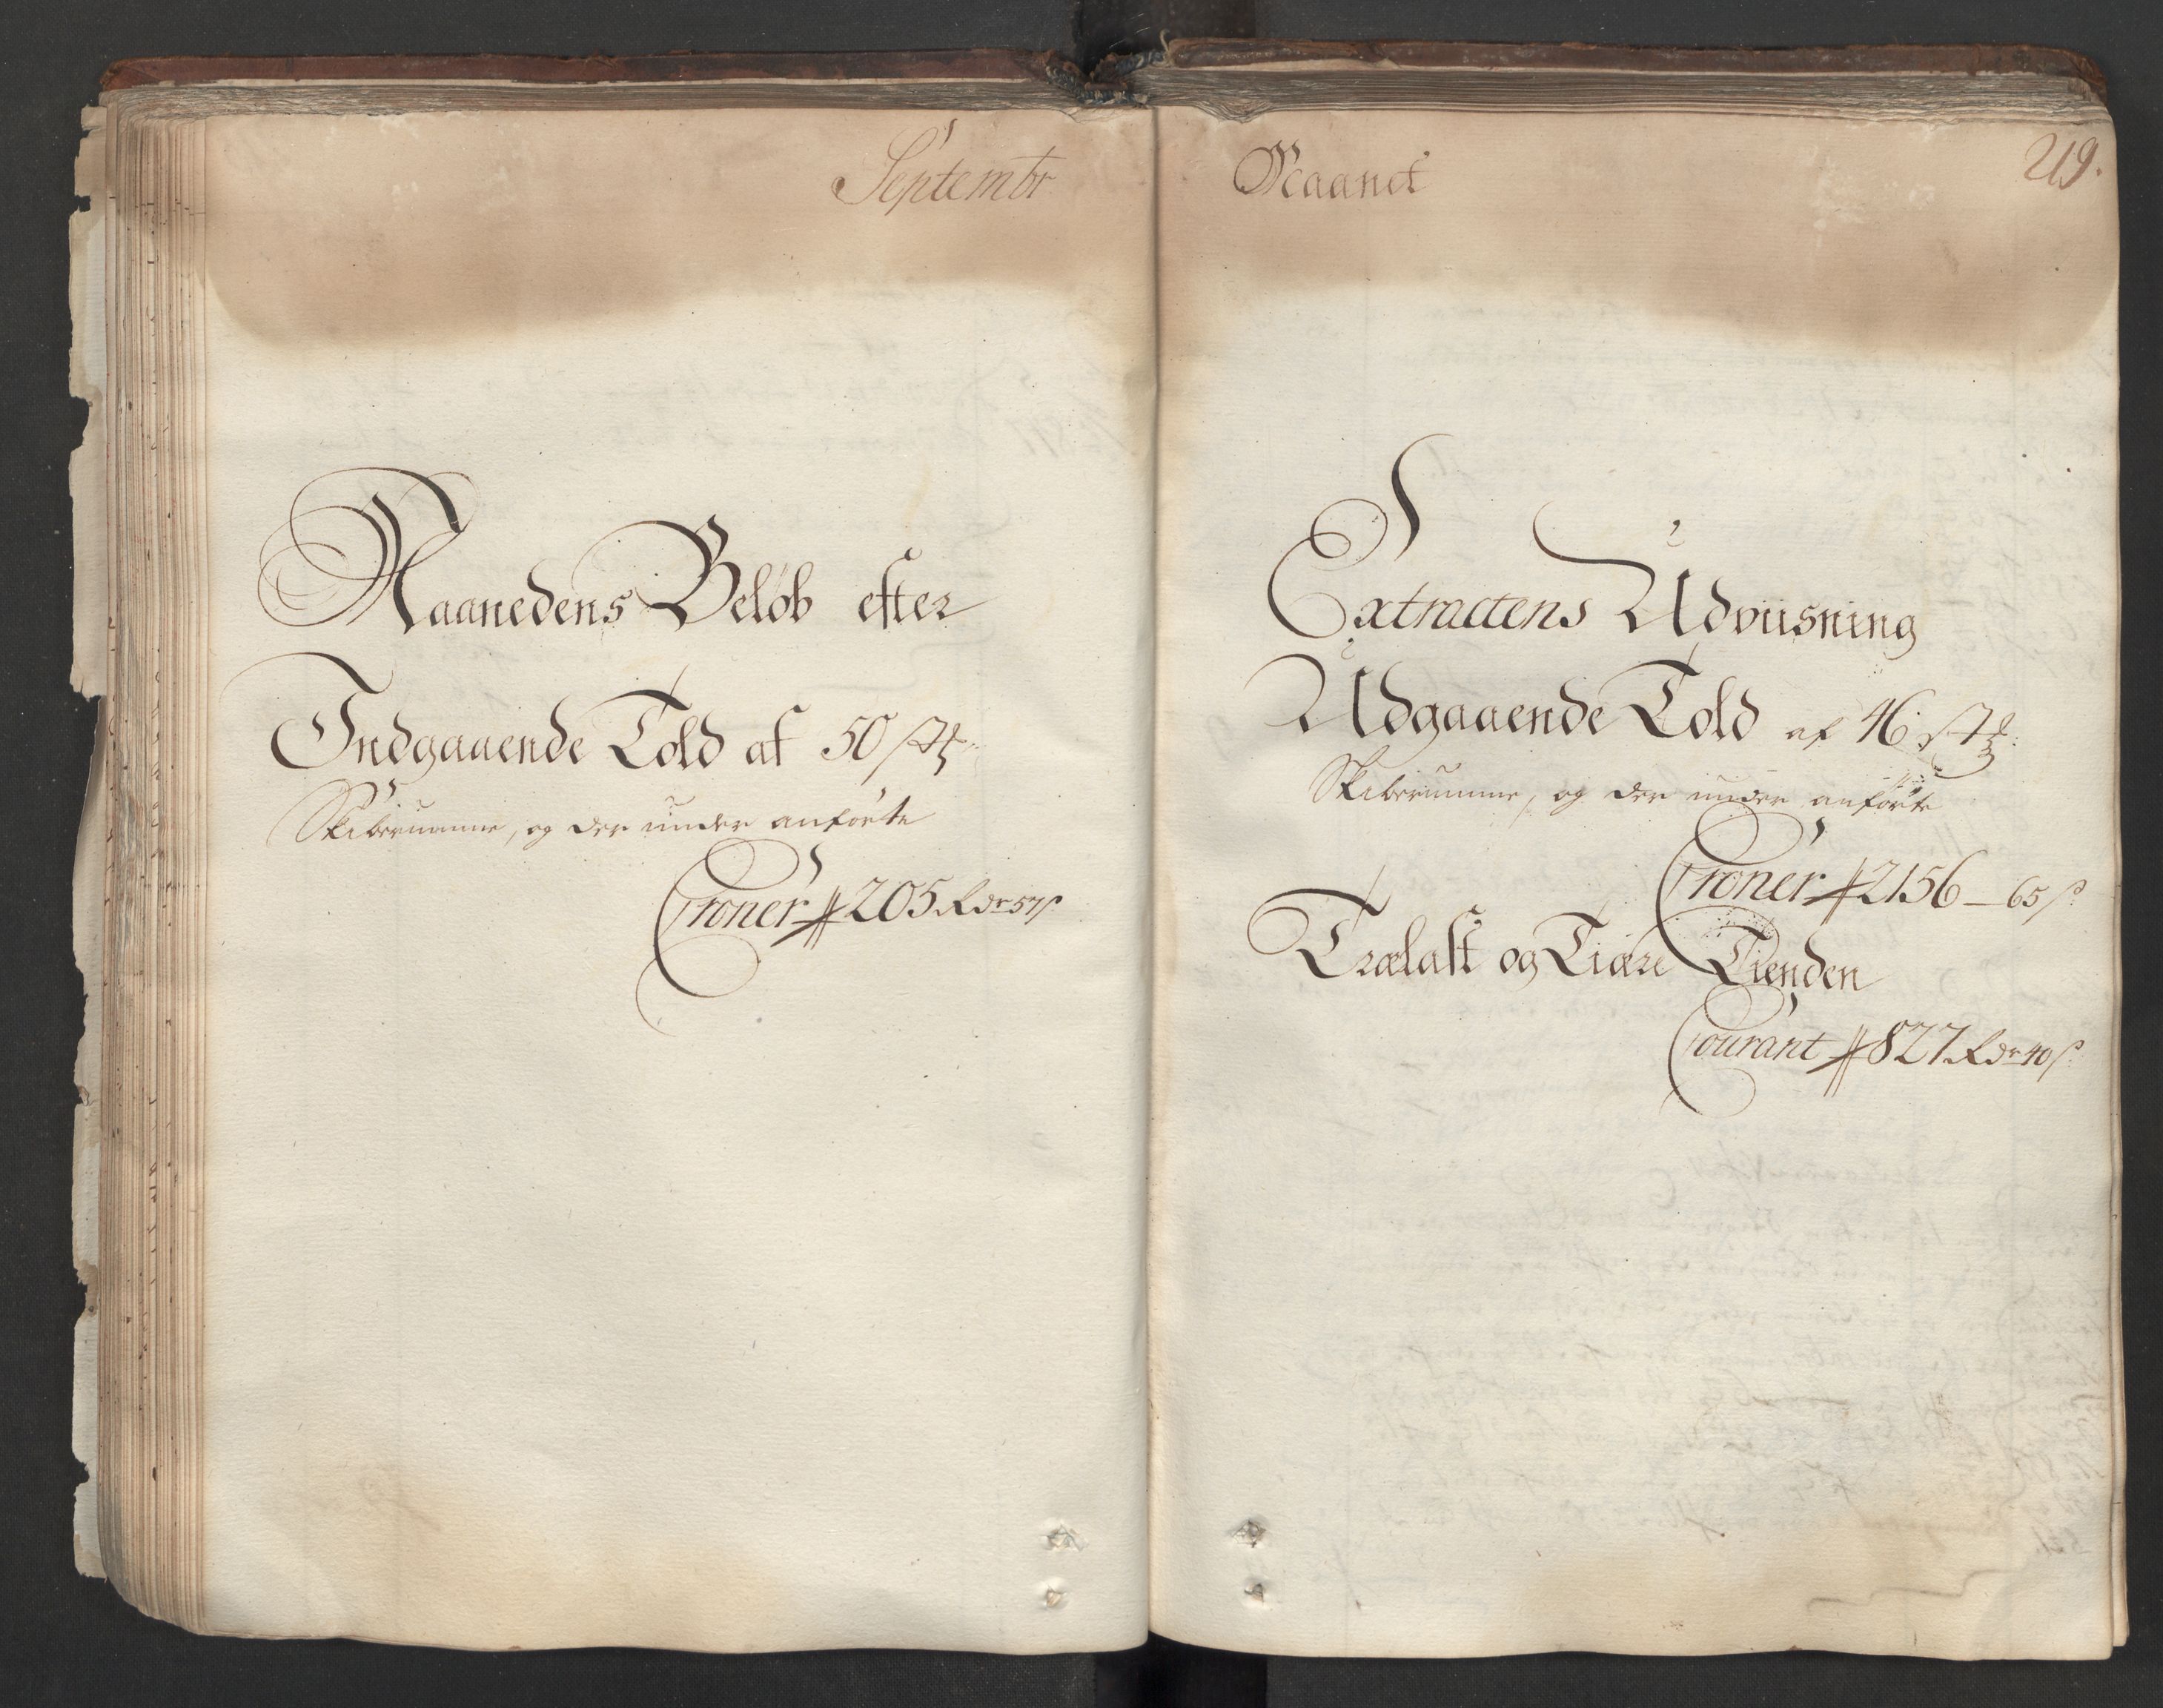 Septembr
Maanedens Beløb efter
Indgaaende Told af 50 st:
Skibsrumme, og der under anførte
Croner # 205 Rdr 57 s
Maanet
219.
Extractens Udviisning
Udgaaende Told af 46 st:
Skibsrumme, og der under anførte
Croner # 2156 - 65 s
Trælast og Tiære Tienden
Courant # 827 Rdr 40 s